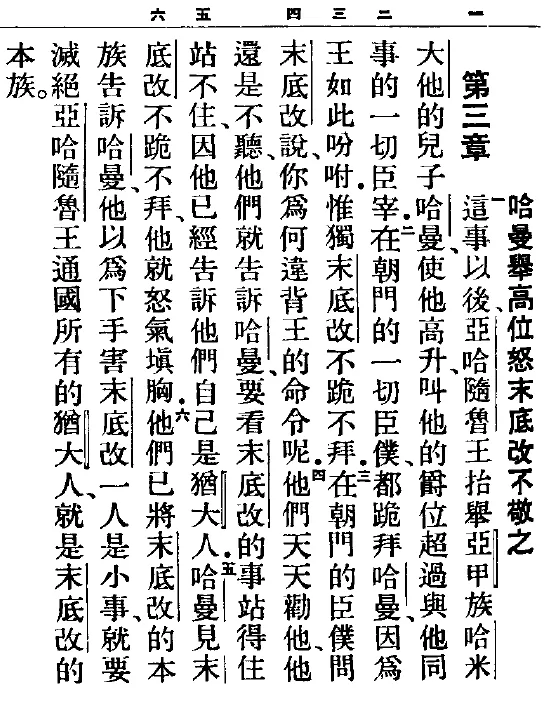 一 二 三 四 五 六
哈曼舉高位怒末底改不敬之
第三章 一這事以後、亞哈隨魯王抬舉亞甲族哈米
大他的兒子哈曼、使他高升、叫他的爵位超過與他同
事的一切臣宰.二在朝門的一切臣僕、都跪拜哈曼、因爲
王如此吩咐.惟獨末底改不跪不拜.三在朝門的臣僕問
末底改說、你爲何違背王的命令呢.四他們天天勸他、他
還是不聽、他們就告訴哈曼、要看末底改的事站得住
站不住、因他已經告訴他們自己是猶大人.五哈曼見末
底改不跪不拜、他就怒氣塡胸.六他們已將末底改的本
族告訴哈曼、他以爲下手害末底改一人是小事、就要
滅絕亞哈隨魯王通國所有的猶大人、就是末底改的
本族。